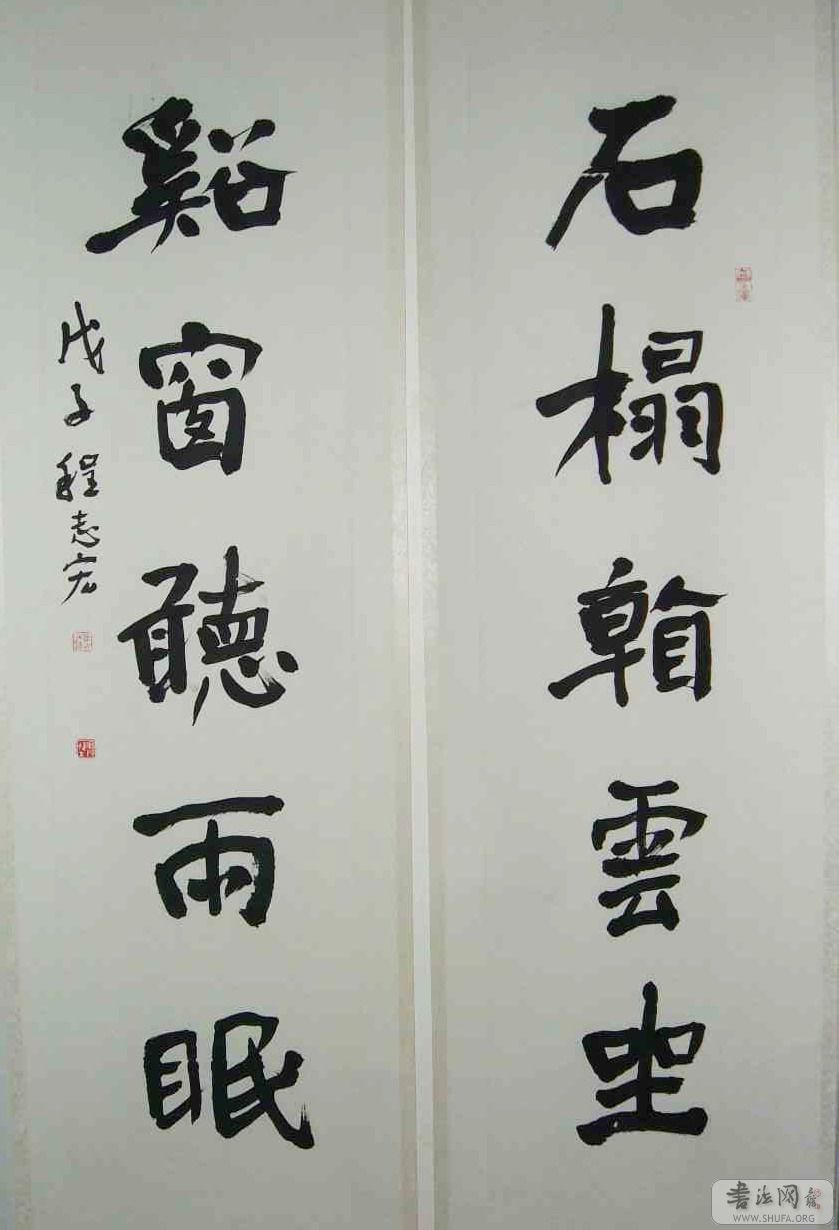 石榻看雲坐
谿窗聽雨眠
戊子 程志宏
書法网
WWW.SHUFA.ORG